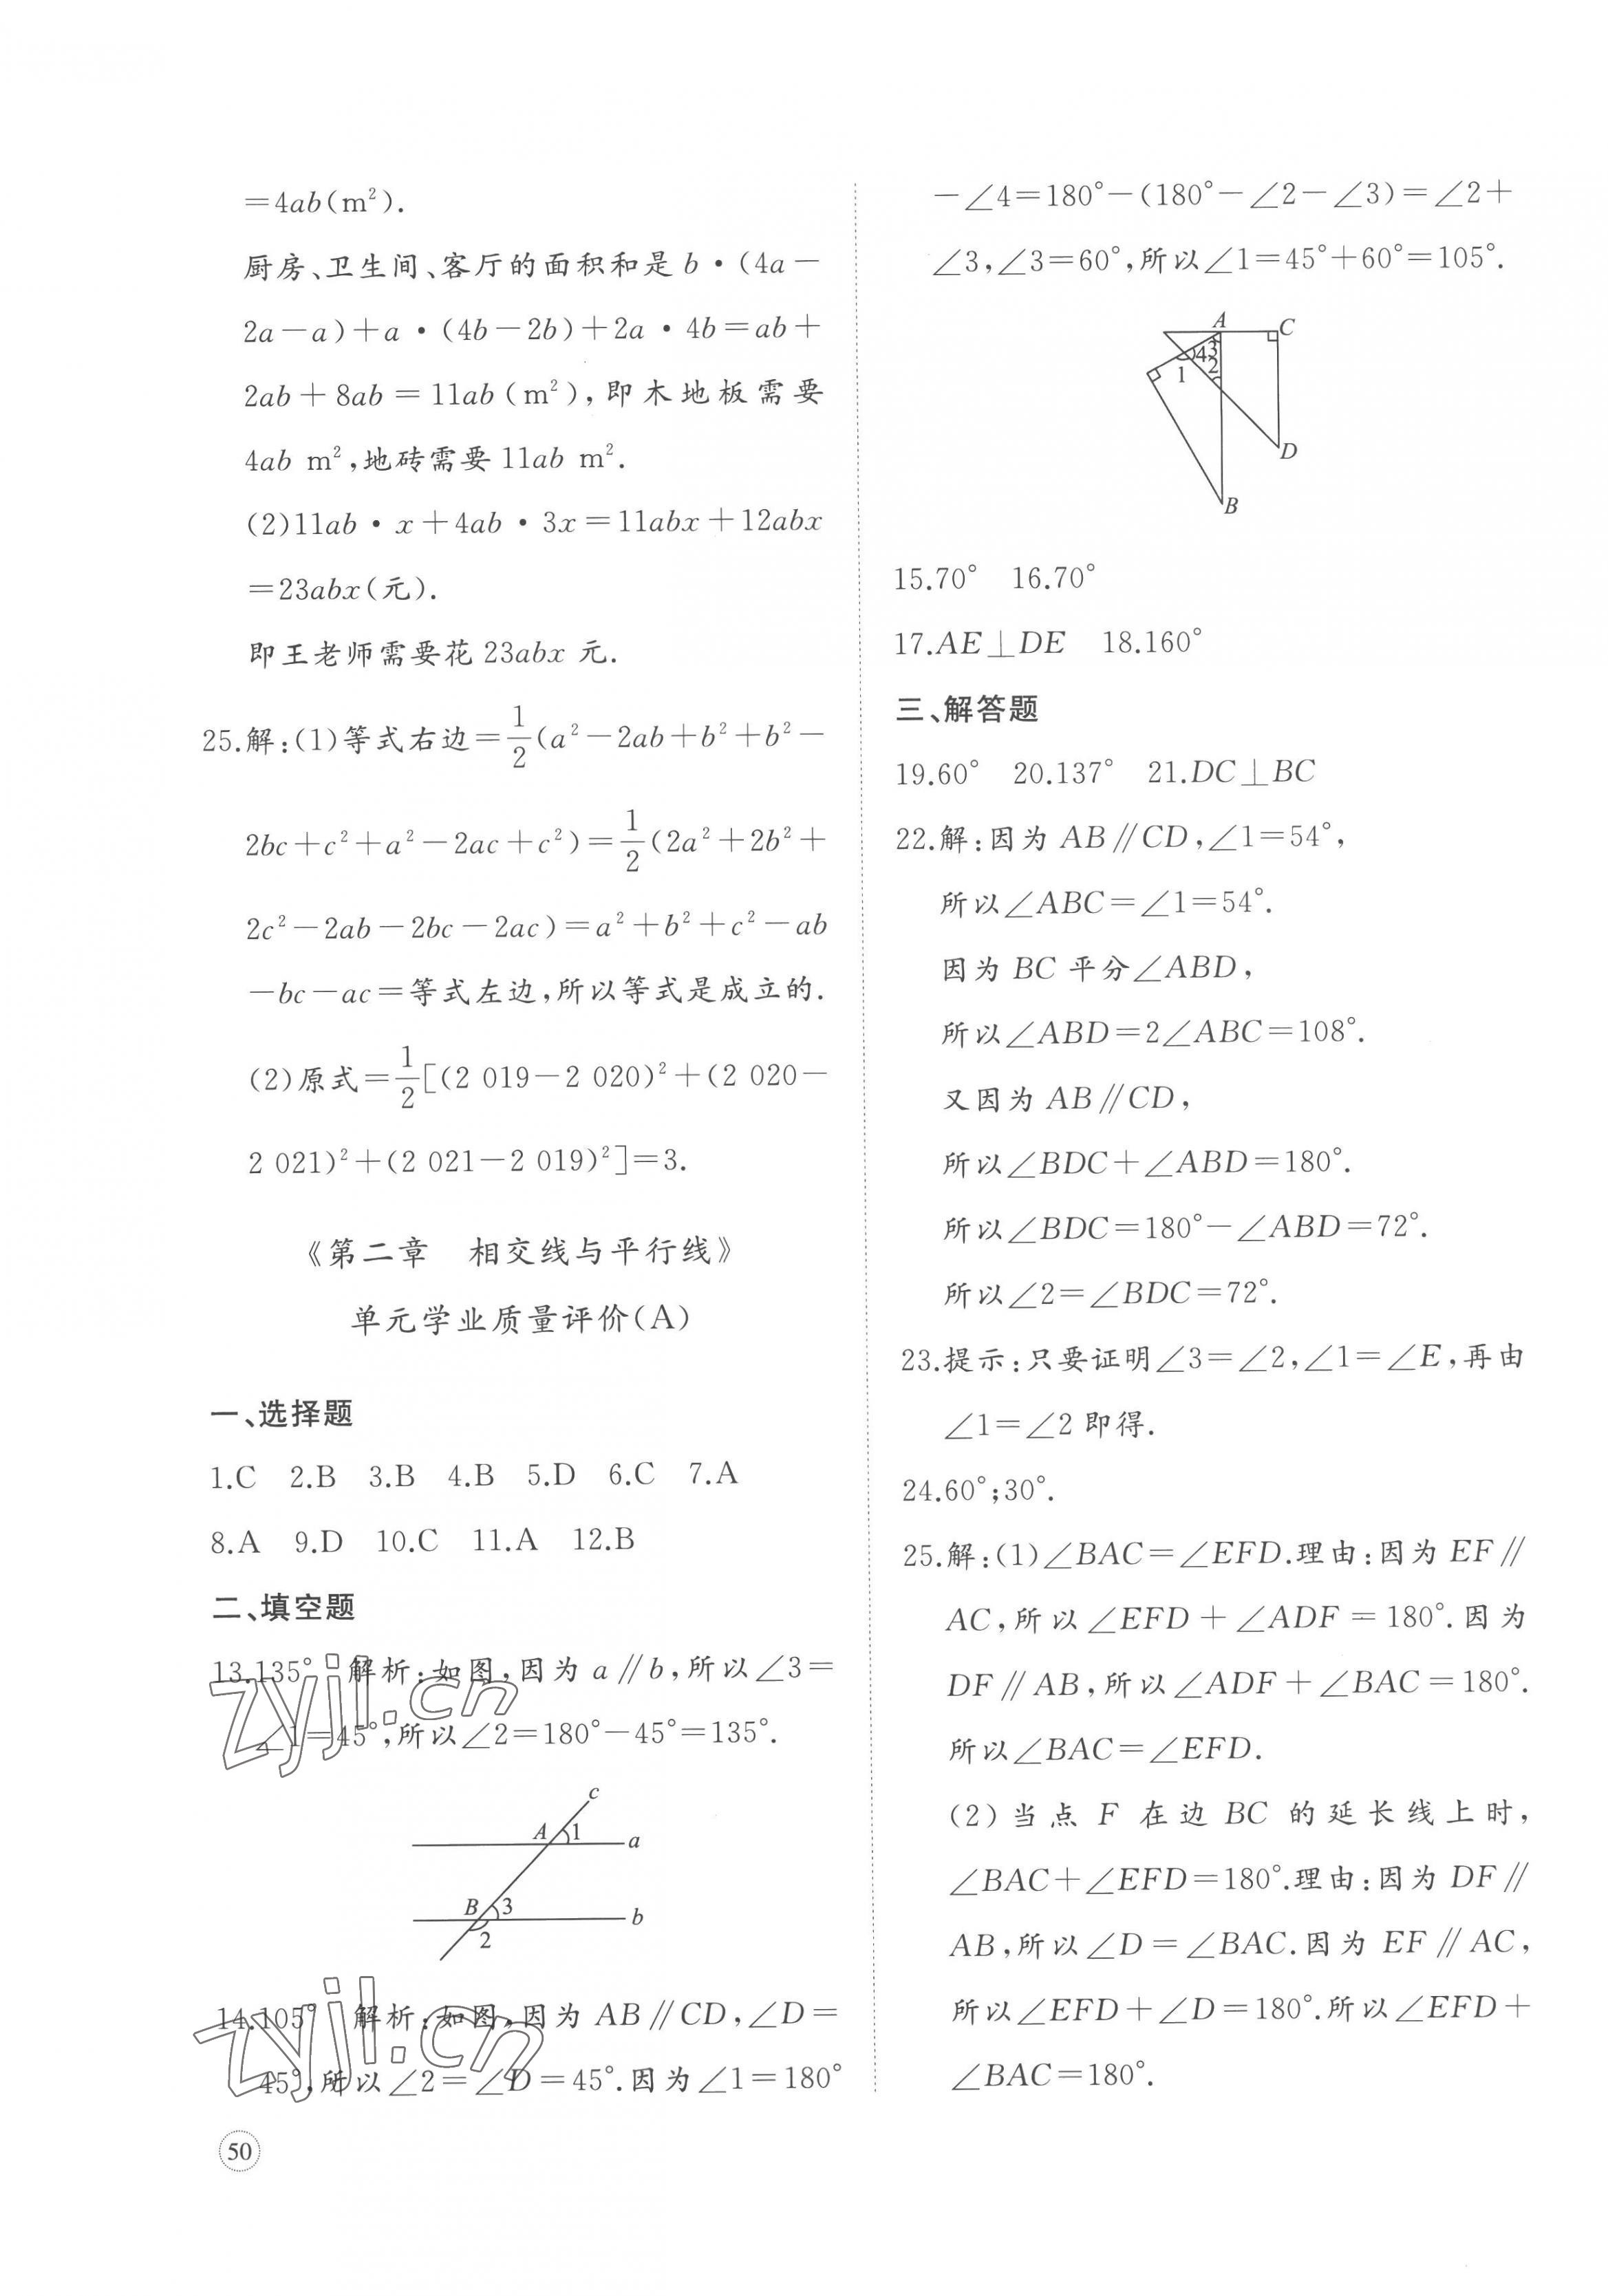 =4ab(m²).
厨房、卫生间、客厅的面积和是 b·(4a-
2a-a)+a·(4b-2b)+2a·4b=ab+
2ab+8ab=11ab(m²),即木地板需要
4ab m²,地砖需要 11ab m².
(2)11ab·x+4ab·3x=11abx+12abx
=23abx(元).
即王老师需要花 23abx 元.
25.解:(1)等式右边=1/2(a²-2ab+b²+b²-
2bc+c²+a²-2ac+c²)=1/2(2a²+2b²+
2c²-2ab-2bc-2ac)=a²+b²+c²-ab
-bc-ac=等式左边,所以等式是成立的.
(2)原式=1/2[(2 019-2 020)²+(2 020-
2 021)²+(2 021-2 019)²]=3.
《第二章 相交线与平行线》
单元学业质量评价(A)
一、选择题
1.C 2.B 3.B 4.B 5.D 6.C 7.A
8.A 9.D 10.C 11.A 12.B
二、填空题
13.135° 解析:如图,因为 a∥b,所以∠3=
∠1=45°,所以∠2=180°-45°=135°.
c
A 1 a
B 3 b
2
14.105° 解析:如图,因为 AB∥CD,∠D=
45°,所以∠2=∠D=45°.因为∠1=180°
zyjl.cn
zyjl.cn
50
-∠4=180°-(180°-∠2-∠3)=∠2+
∠3,∠3=60°,所以∠1=45°+60°=105°.
A C
43
1 2
D
B
15.70° 16.70°
17.AE⊥DE 18.160°
三、解答题
19.60° 20.137° 21.DC⊥BC
22.解:因为 AB∥CD,∠1=54°,
所以∠ABC=∠1=54°.
因为 BC 平分∠ABD,
所以∠ABD=2∠ABC=108°.
又因为 AB∥CD,
所以∠BDC+∠ABD=180°.
所以∠BDC=180°-∠ABD=72°.
所以∠2=∠BDC=72°.
23.提示:只要证明∠3=∠2,∠1=∠E,再由
∠1=∠2 即得.
24.60°;30°.
25.解:(1)∠BAC=∠EFD.理由:因为 EF∥
AC,所以∠EFD+∠ADF=180°.因为
DF∥AB,所以∠ADF+∠BAC=180°.
所以∠BAC=∠EFD.
(2)当点 F 在边 BC 的延长线上时,
∠BAC+∠EFD=180°.理由:因为 DF∥
AB,所以∠D=∠BAC.因为 EF∥AC,
所以∠EFD+∠D=180°.所以∠EFD+
∠BAC=180°.